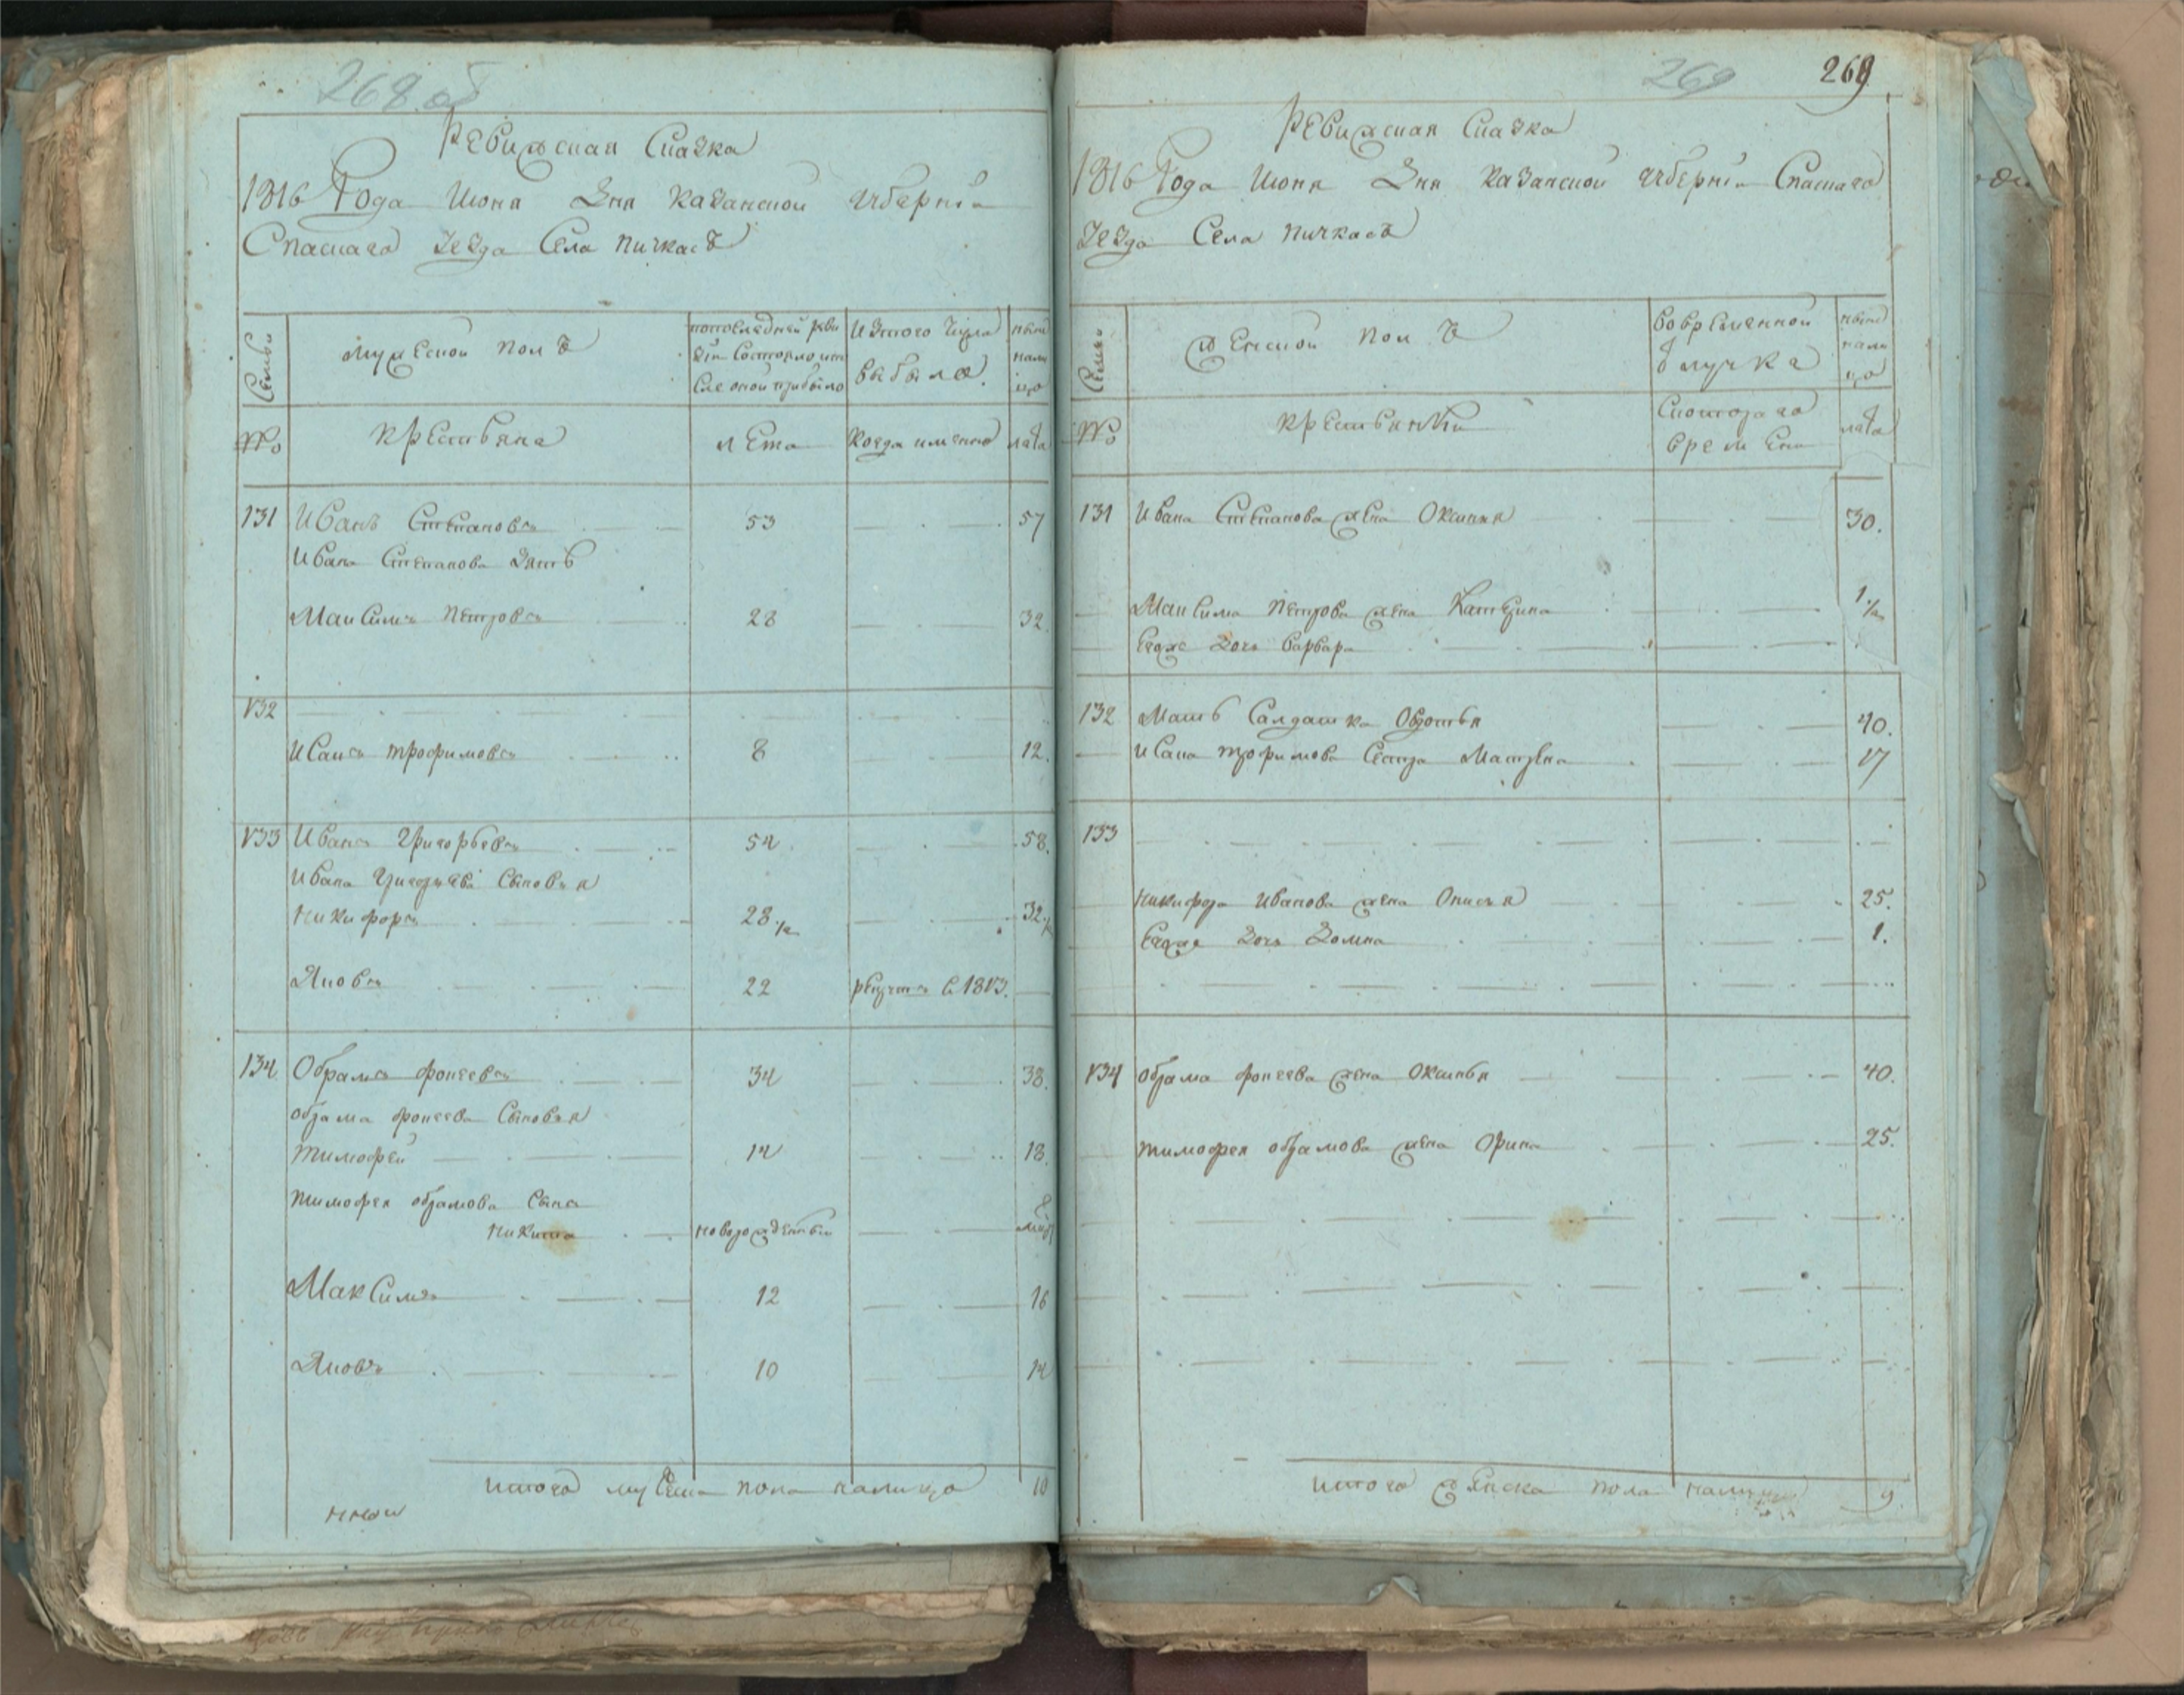 268 об
Ревижская Сказка
1816 Года Июня Дня Казанской Губерніи
Спаскаго Уезда Села Пичкасъ
Семьи
Мужеской полъ
попоследней реви
зіи состояло ипо
сле оной прибыло
Изтого числа
выбыло
ныне
нали
цо
№
Крестьяне
лета
Когда имянно
лета
131 Иванъ Степановъ 53 57
Ивана Степанова Зять
Максимъ Петровъ 28 32
132
Исакъ Трофимовъ 8 12.
133 Иванъ Григорьевъ 54 58.
Ивана Григорьева Сыновья
Никифоръ 28 1/2 32 1/2
Яковъ 22 рекрутъ в 1813.
134 Обрамъ Фокеевъ 34 38.
Обрама Фокеева Сыновья
Тимофей 14 18.
Тимофея Обрамова Сынъ 8
Никита новорожденный
Максимъ 12 16
Яковъ 10 14
Итого мужеска пола налицо 10
269 269
Ревижская Сказка
1816 Года Июня Дня Казанской Губерніи Спаскаго
Уезда Села Пичкасъ
Семьи
Женской полъ
Вовременной
Ѿлучке
ныне
нали
цо
№
Крестьянки
Скоторого
времени
лета
131 Ивана Степанова жена Оксинья 30.
Максима Петрова жена Катерина
Ево же дочь Варвара 1 1/2
132 Мать Салдатка Овдотья 40.
Исака Трофимова Сестра Матрена 17
133
Никифора Иванова жена Онисья 25.
Ево же дочь Домна 1.
134 Обрама Фокеева жена Оксинья 40.
Тимофея Обрамова жена Орина 25.
Итого женска пола налицо 9.